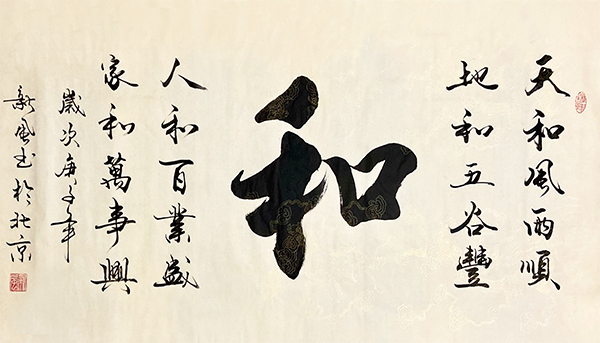 天和风雨顺
地和五谷豐
和
人和百業盛
家和萬事興
歲次庚子年
新風书於北京